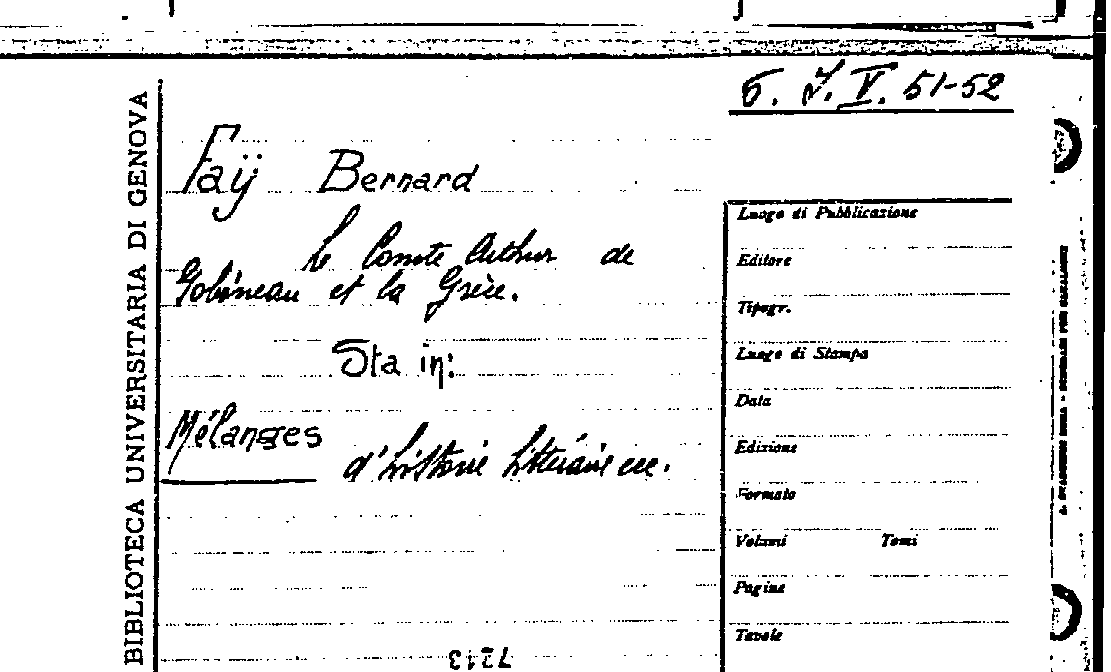 6. J. V. 51-52
BIBLIOTECA UNIVERSITARIA DI GENOVA
Faÿ Bernard
Le Comte Arthur de
Gobineau et la Grèce.
Sta in:
Mélanges d'histoire littéraire ecc.
Luogo di Pubblicazione
Editore
Tipogr.
Luogo di Stampa
Data
Edizione
Formato
Volumi Tomi
Pagine
Tavole
7213